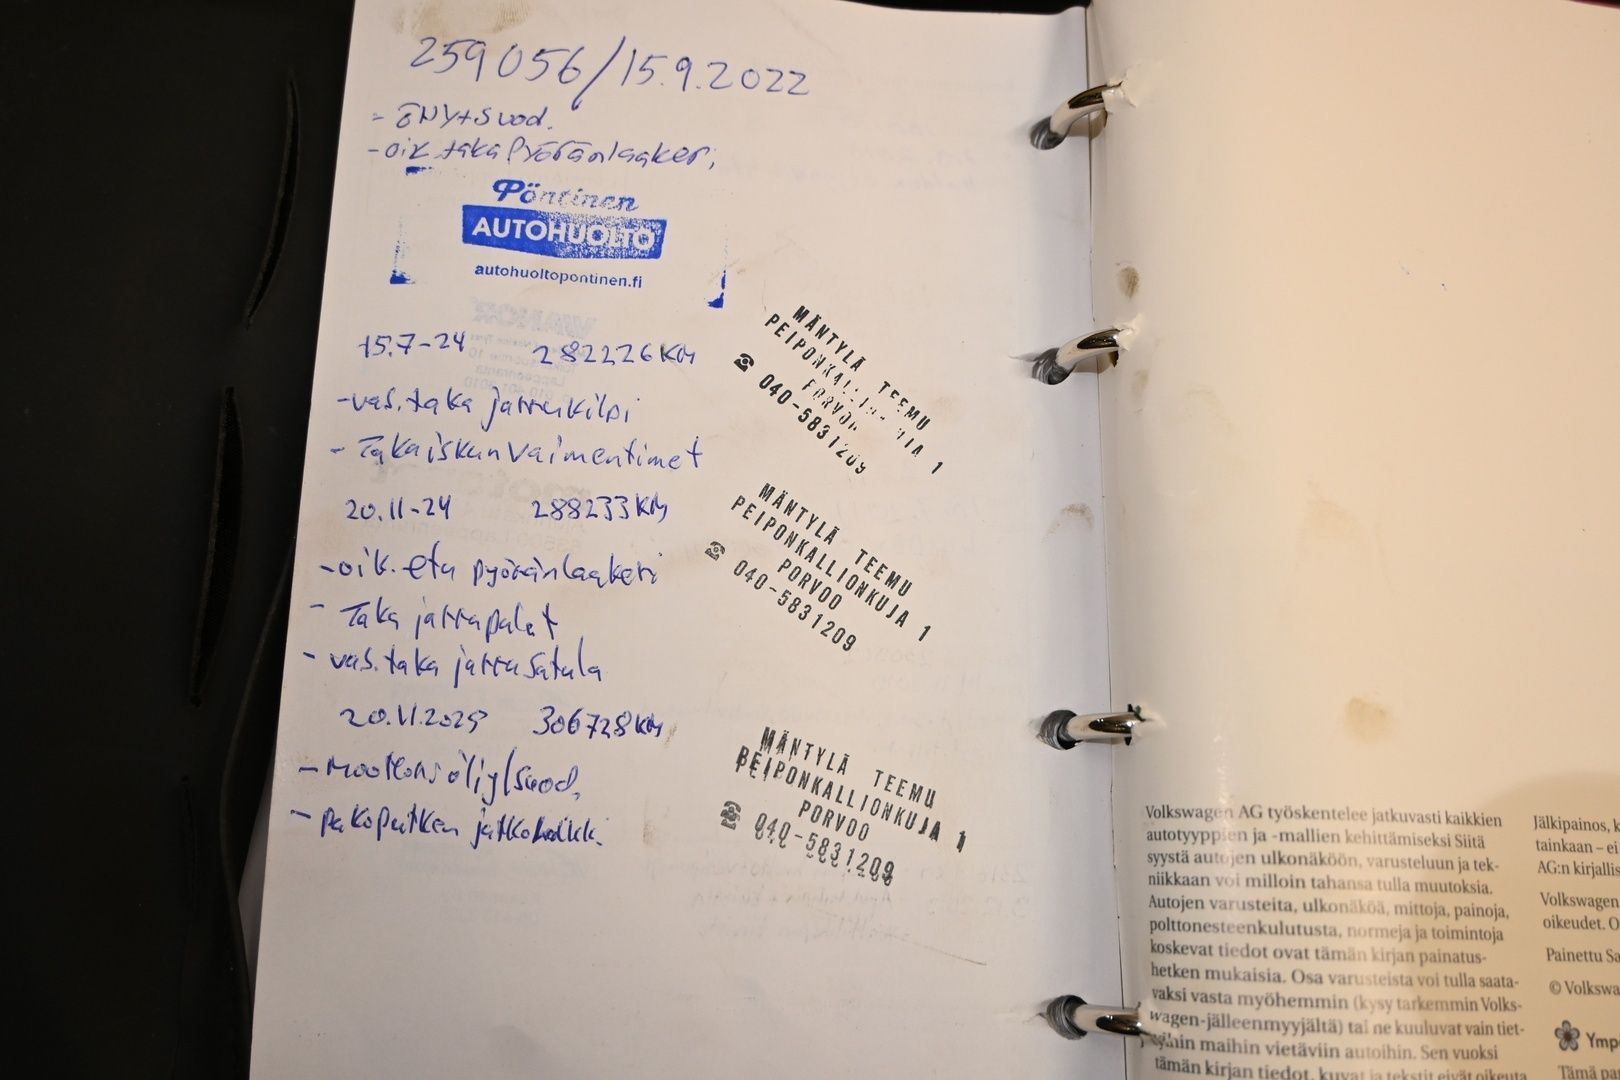 259056/15.9.2022
- ÖNY+Suod.
- oik taka Pyöränlaakeri
Pöntinen
AUTOHUOLTO
autohuoltopontinen.fi
15.7-24 282226KM
- vas.taka jarrukilpi
- Takaiskunvaimentimet
MÄNTYLÄ TEEMU
PEIPONKALLIONKUJA 1
PORVOO
☎ 040-5831209
20.11-24 288233KM
- oik. etu pyöränlaakeri
- Taka jarrupalat
- vas.taka jarrusatula
MÄNTYLÄ TEEMU
PEIPONKALLIONKUJA 1
PORVOO
☎ 040-5831209
20.11.2025 306728KM
- moottori öljy/suod.
- pakoputken jatkoholkki
MÄNTYLÄ TEEMU
PEIPONKALLIONKUJA 1
PORVOO
☎ 040-5831209
Volkswagen AG työskentelee jatkuvasti kaikkien
autotyyppien ja -mallien kehittämiseksi Siitä
syystä autojen ulkonäköön, varusteluun ja tek-
niikkaan voi milloin tahansa tulla muutoksia.
Autojen varusteita, ulkonäköä, mittoja, painoja,
polttonesteenkulutusta, normeja ja toimintoja
koskevat tiedot ovat tämän kirjan painatus-
hetken mukaisia. Osa varusteista voi tulla saata-
vaksi vasta myöhemmin (kysy tarkemmin Volks-
wagen-jälleenmyyjältä) tai ne kuuluvat vain tiet-
tyihin maihin vietäviin autoihin. Sen vuoksi
tämän kirjan tiedot, kuvat ja tekstit eivät oikeuta
Jälkipainos, k
tainkaan – ei
AG:n kirjallis
Volkswagen
oikeudet. O
Painettu Sa
© Volkswa
Ympä
Tämä pa